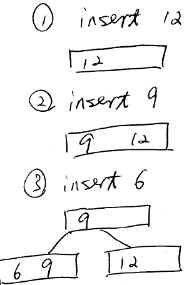 ① insert 12
12
② insert 9
9 12
③ insert 6
9
6 9 12